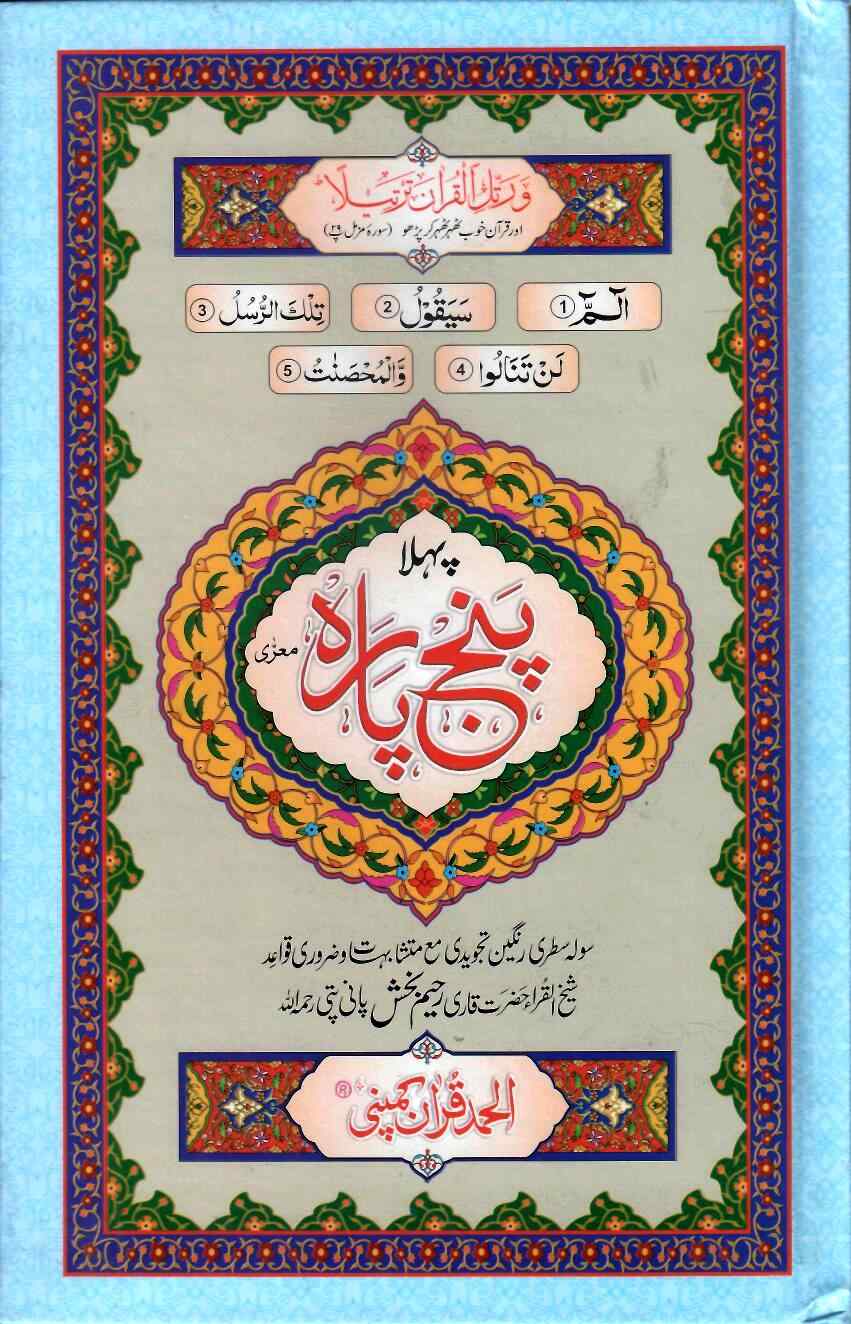 وَرَتِّلِ الْقُرْاٰنَ تَرْتِيْلًا
اور قرآن خوب ٹھہر ٹھہر کر پڑھو (سورۂ مزمل پ ۲۹)
الٓمّٓ 1 سَيَقُوْلُ 2 تِلْكَ الرُّسُلُ 3
لَنْ تَنَالُوا 4 وَّالْمُحْصَنٰتُ 5
پہلا
پنج پارہ
معرّٰی
سولہ سطری رنگین تجویدی مع متشابہت و ضروری قواعد
شیخ القراء حضرت قاری رحیم بخش پانی پتی رحمہ اللہ
الحمد قرآن کمپنی ®